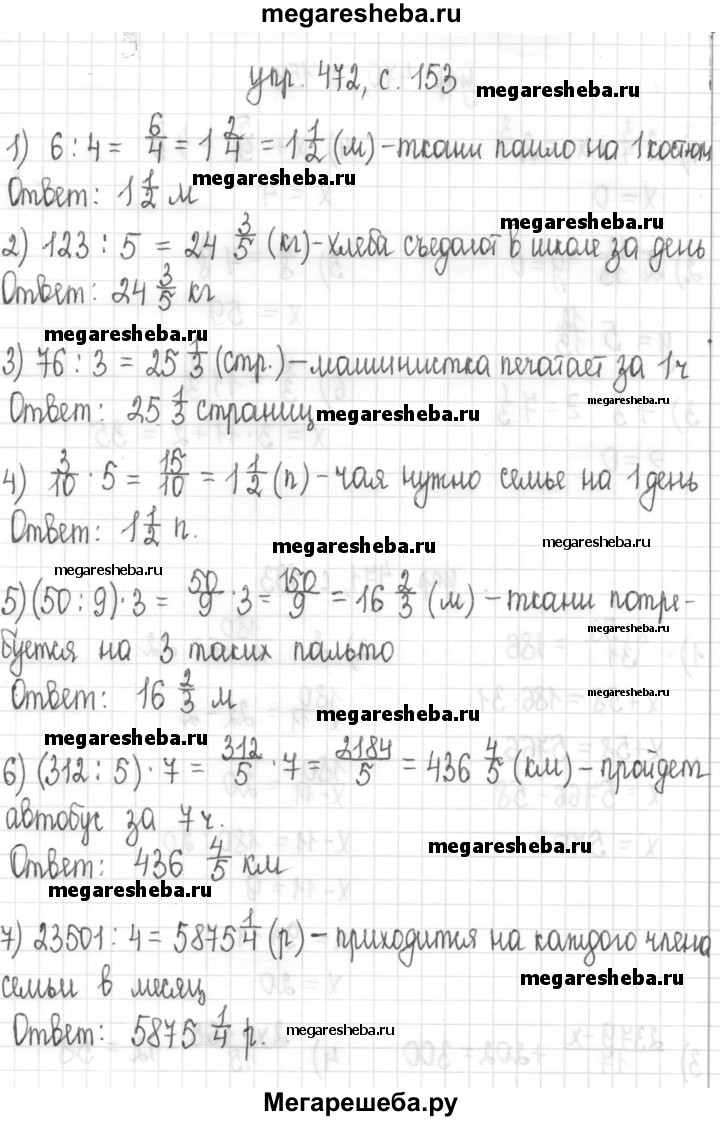 megaresheba.ru
упр. 472, с. 153 megaresheba.ru
1) 6 : 4 = 6/4 = 1 2/4 = 1 1/2 (м) - ткани пошло на 1 костюм
Ответ: 1 1/2 м megaresheba.ru
megaresheba.ru
2) 123 : 5 = 24 3/5 (кг) - хлеба съедают в школе за день
Ответ: 24 3/5 кг
megaresheba.ru
3) 76 : 3 = 25 1/3 (стр.) - машинистка печатает за 1 ч
Ответ: 25 1/3 страниц megaresheba.ru megaresheba.ru
4) 3/10 · 5 = 15/10 = 1 1/2 (п) - чая нужно семье на 1 день
Ответ: 1 1/2 п. megaresheba.ru megaresheba.ru
megaresheba.ru
5) (50 : 9) · 3 = 50/9 · 3 = 150/9 = 16 2/3 (м) - ткани потре-
megaresheba.ru
буется на 3 таких пальто
Ответ: 16 2/3 м megaresheba.ru megaresheba.ru
megaresheba.ru
6) (312 : 5) · 7 = 312/5 · 7 = 2184/5 = 436 4/5 (км) - пройдет
автобус за 7 ч.
Ответ: 436 4/5 км megaresheba.ru
megaresheba.ru megaresheba.ru
7) 23501 : 4 = 5875 1/4 (р) - приходится на каждого члена
семьи в месяц megaresheba.ru
Ответ: 5875 1/4 р. megaresheba.ru
Мегарешеба.ру